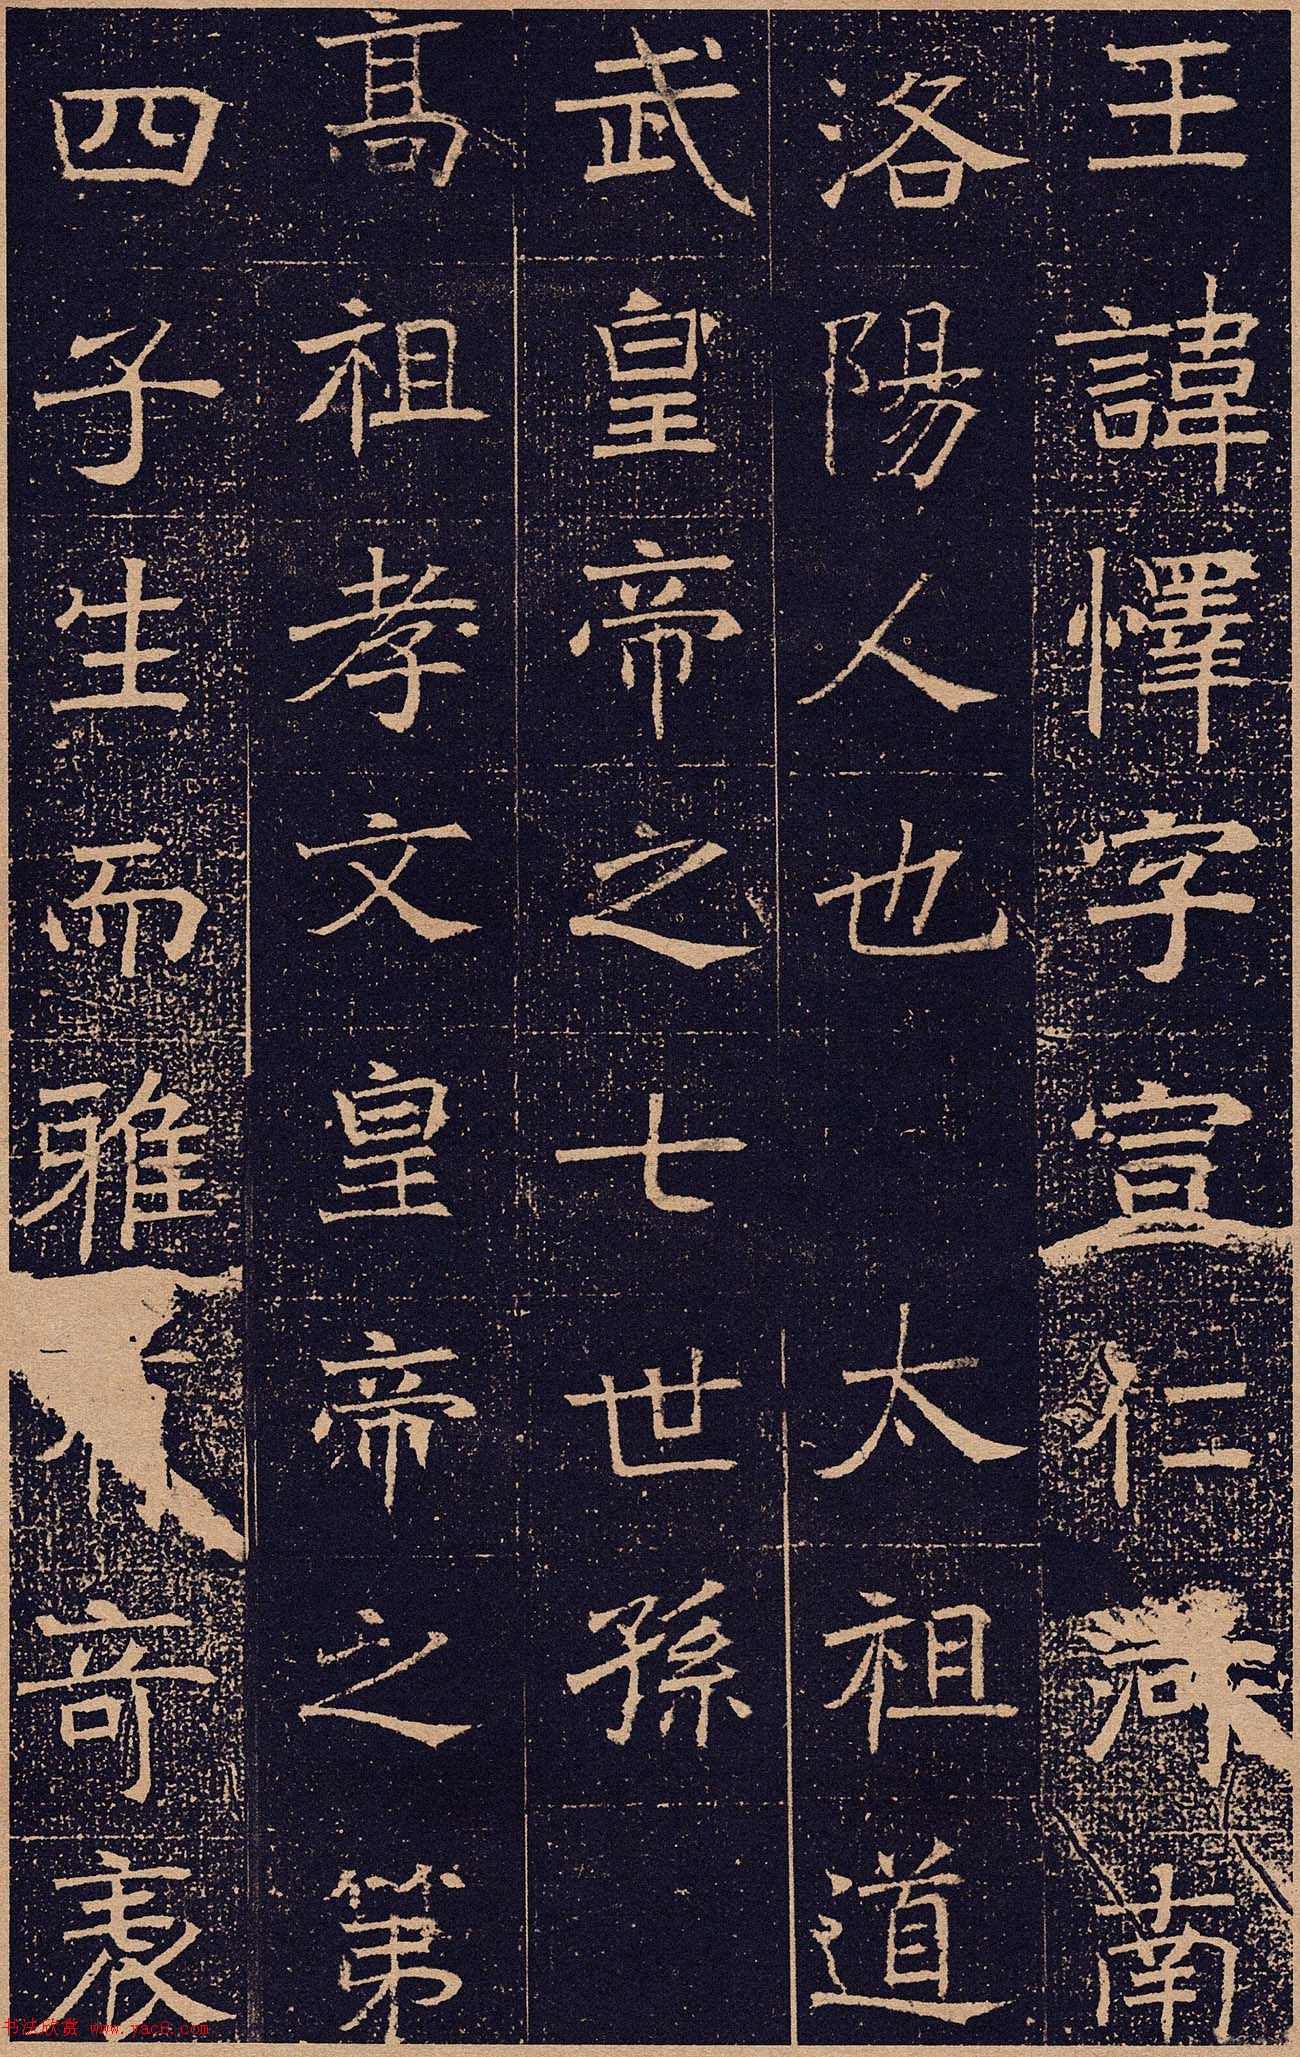 王諱懌字宣仁河南
洛陽人也太祖道
武皇帝之七世孫
高祖孝文皇帝之第
四子生而雅奇表
书法欣赏 www.yac8.com